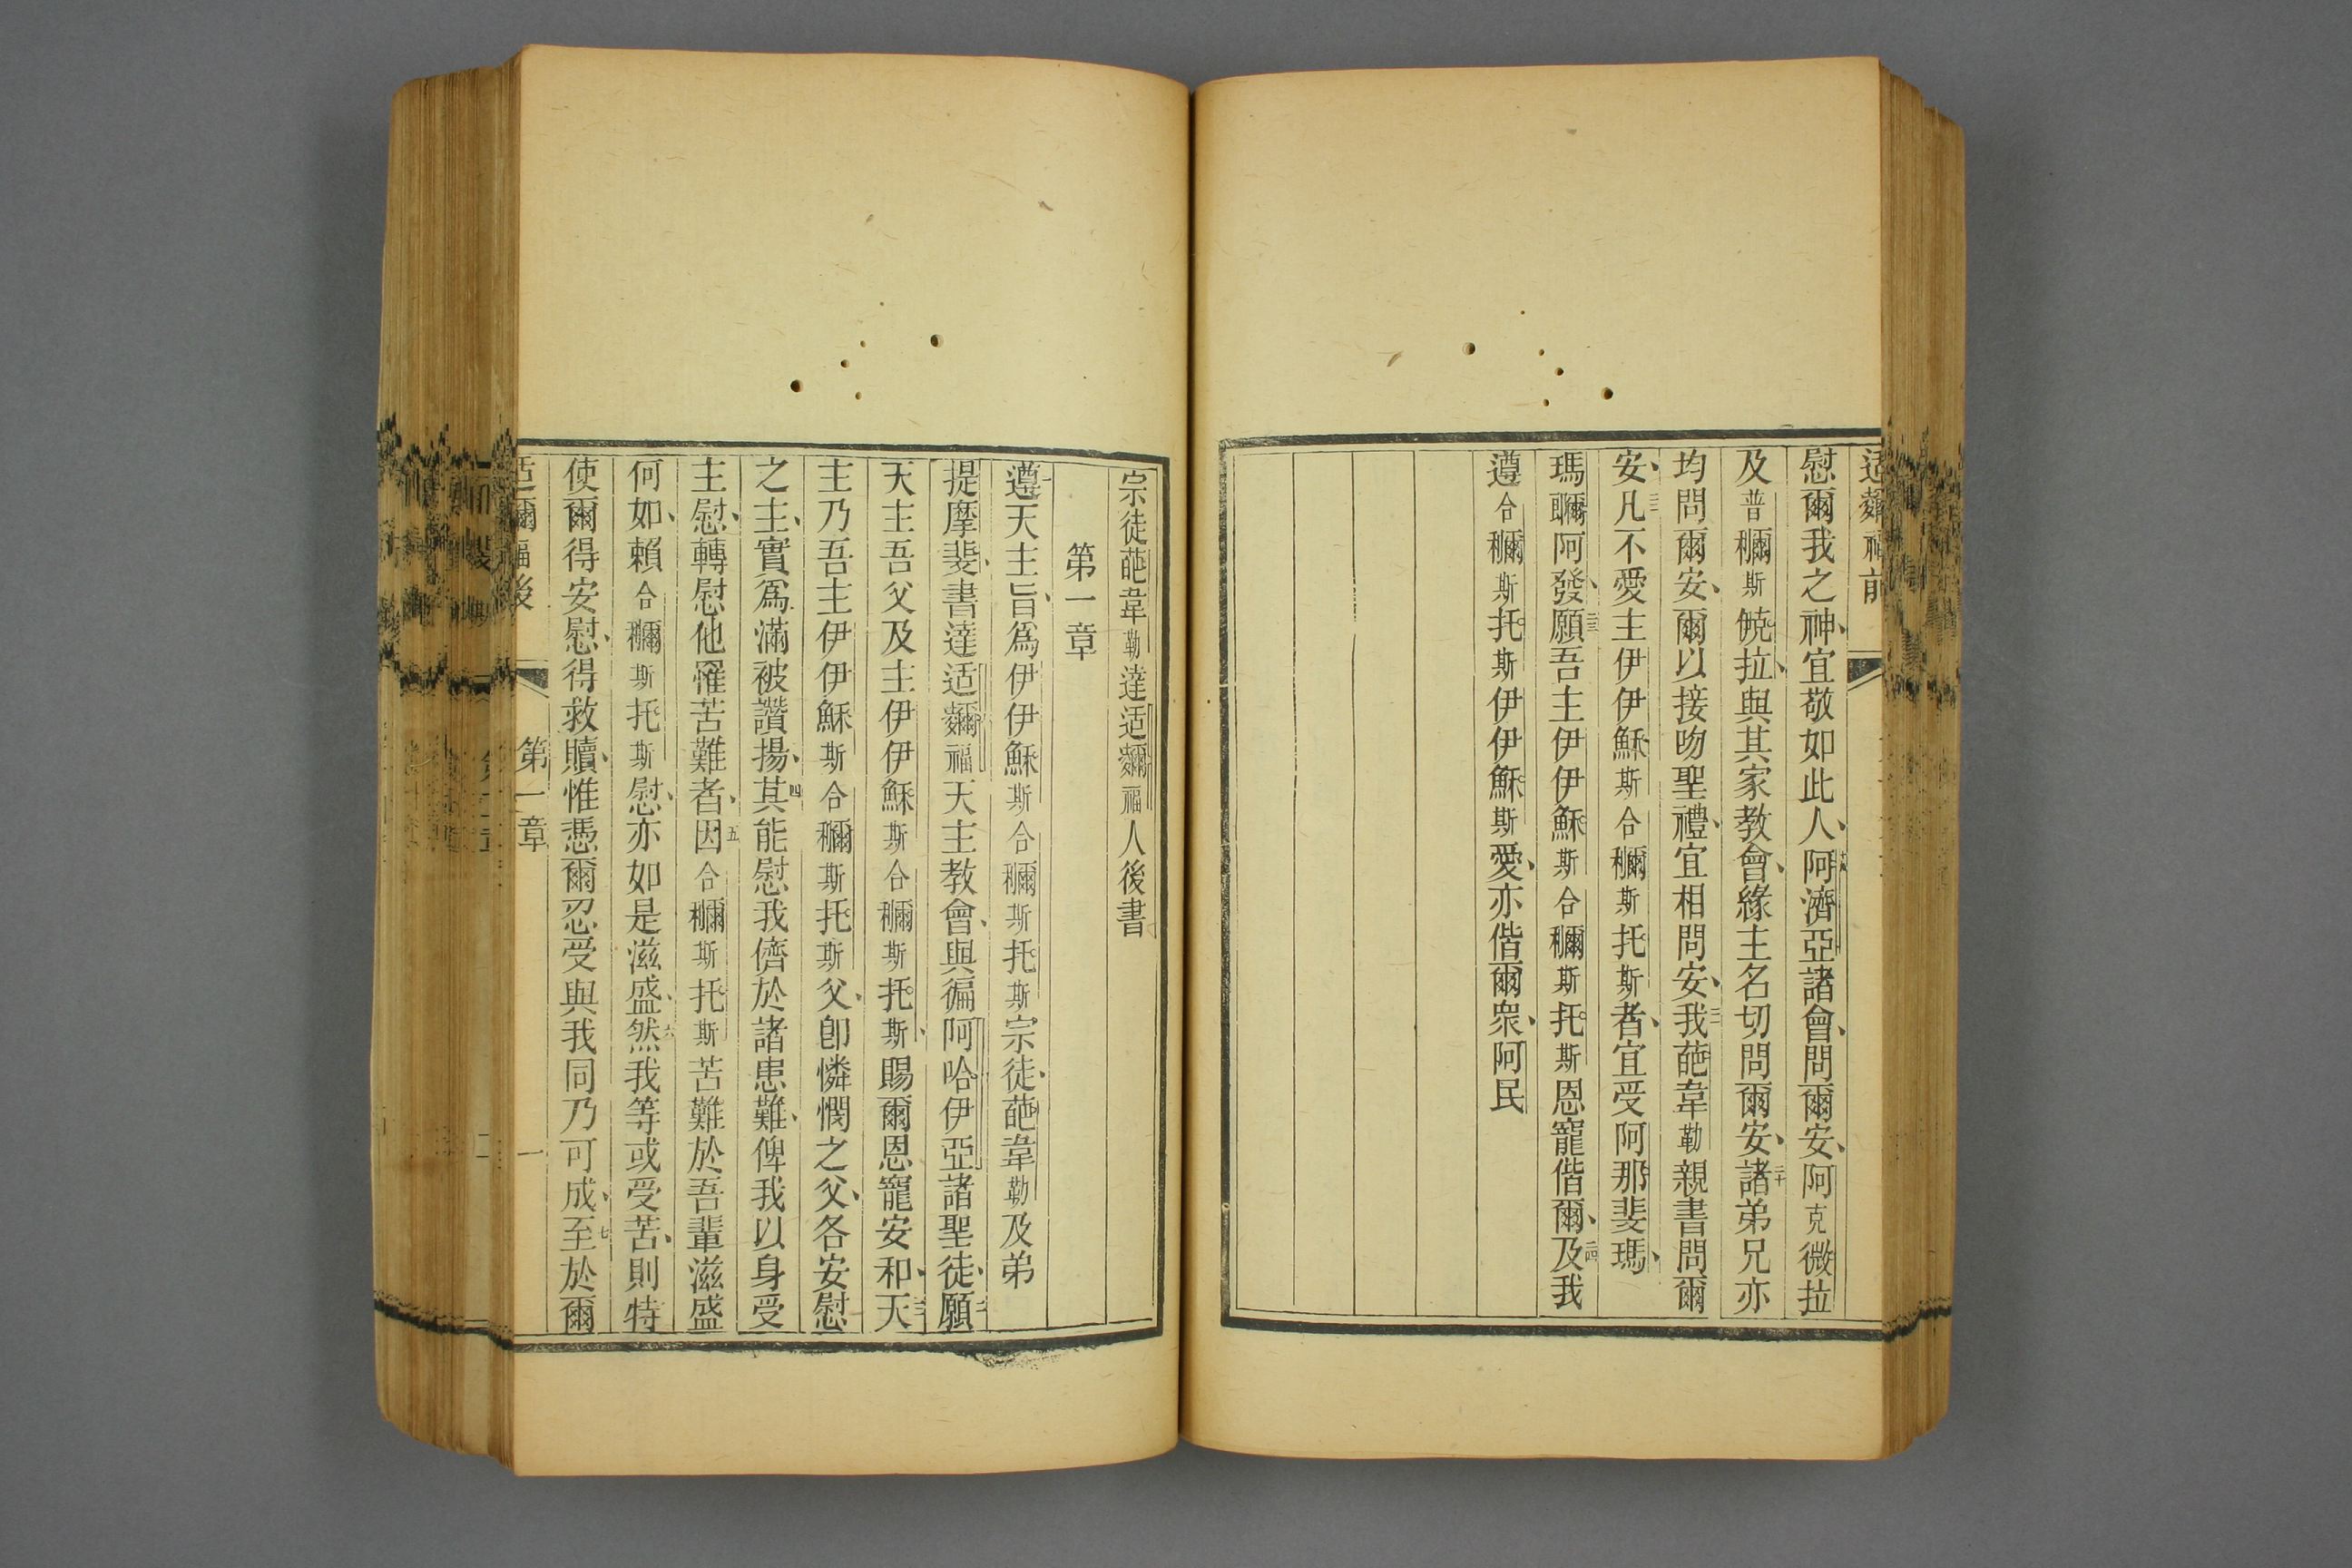 慰爾我之神、宜敬如此人、阿濟亞諸會、問爾安、阿克微拉
及普𥣡斯𠒇拉、與其家教會、緣主名切問爾安、諸弟兄亦
均問爾安、爾以接吻聖禮、宜相問安、我葩韋勒親書問爾
安、凡不愛主伊伊穌斯合𥣡斯托斯者、宜受阿那斐瑪、
瑪阿發、願吾主伊伊穌斯合𥣡斯托斯恩寵偕爾、及我
遵合𥣡斯托斯伊伊穌斯愛、亦偕爾衆、阿民
宗徒葩韋勒達适福人後書
第一章
遵天主旨、爲伊伊穌斯合𥣡斯托斯宗徒、葩韋勒及弟
提摩斐、書達适福天主教會、與徧阿哈伊亞諸聖徒、願
天主吾父及主伊伊穌斯合𥣡斯托斯、賜爾恩寵安和、天
主乃吾主伊伊穌斯合𥣡斯托斯父、卽憐憫之父、各安慰
之主、實爲滿被讚揚、其能慰我儕於諸患難、俾我以身受
主慰、轉慰他罹苦難者、因合𥣡斯托斯苦難於吾輩滋盛
何如、賴合𥣡斯托斯慰、亦如是滋盛、然我等或受苦、則特
使爾得安慰、得救贖、惟憑爾忍受與我同乃可成、至於爾
第一章
一